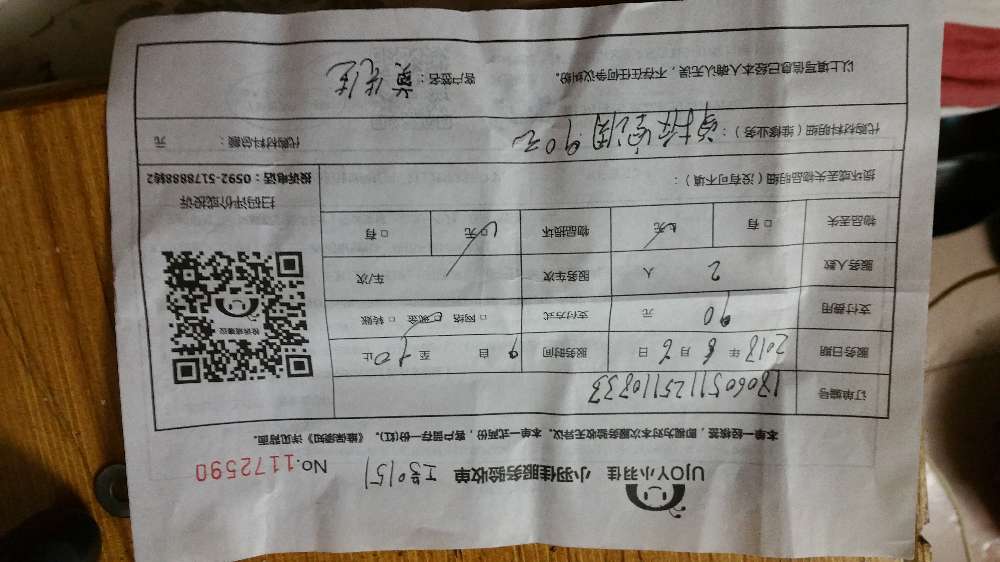 UJOY小羽佳 小羽佳服务验收单 工号0151 No.1172590
本单一经核签，即视为对本次服务验收无异议。本单一式两份，客户留存一份(红)。《维保须知》详见背面。
订单编号 18060511125110833
服务日期 2018年6月6日 服务时间 9自 至10止
支付费用 90元 支付方式 □网络 □现金 □转账
服务人数 2人 服务车次 车/次
物品丢失 □有 □无 物品损坏 □无 □有
损坏或丢失物品明细（没有可不填）：
投诉建议
扫码评价或投诉
投诉电话：0592-5178888转2
代购材料明细（维修业务）： 空调90元
代购材料总额： 元
以上填写信息已经本人确认无误，不存在任何争议纠纷。
客户签名：